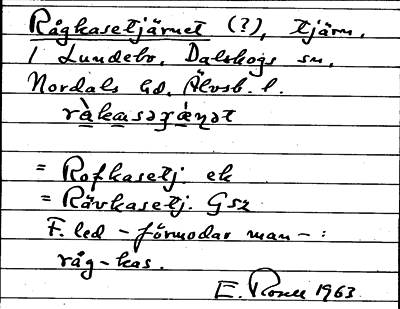 Rågkasetjärnet (?), tjärn.
1 Lundebo, Dalskogs sn,
Nordals hd. Älvsb. l.
ràkasəɟǽṇət
= Rofkasetj. ek
= Rävkasetj. Gsz
F. led - förmodar man - :
råg-kas.
E. Rosell 1963